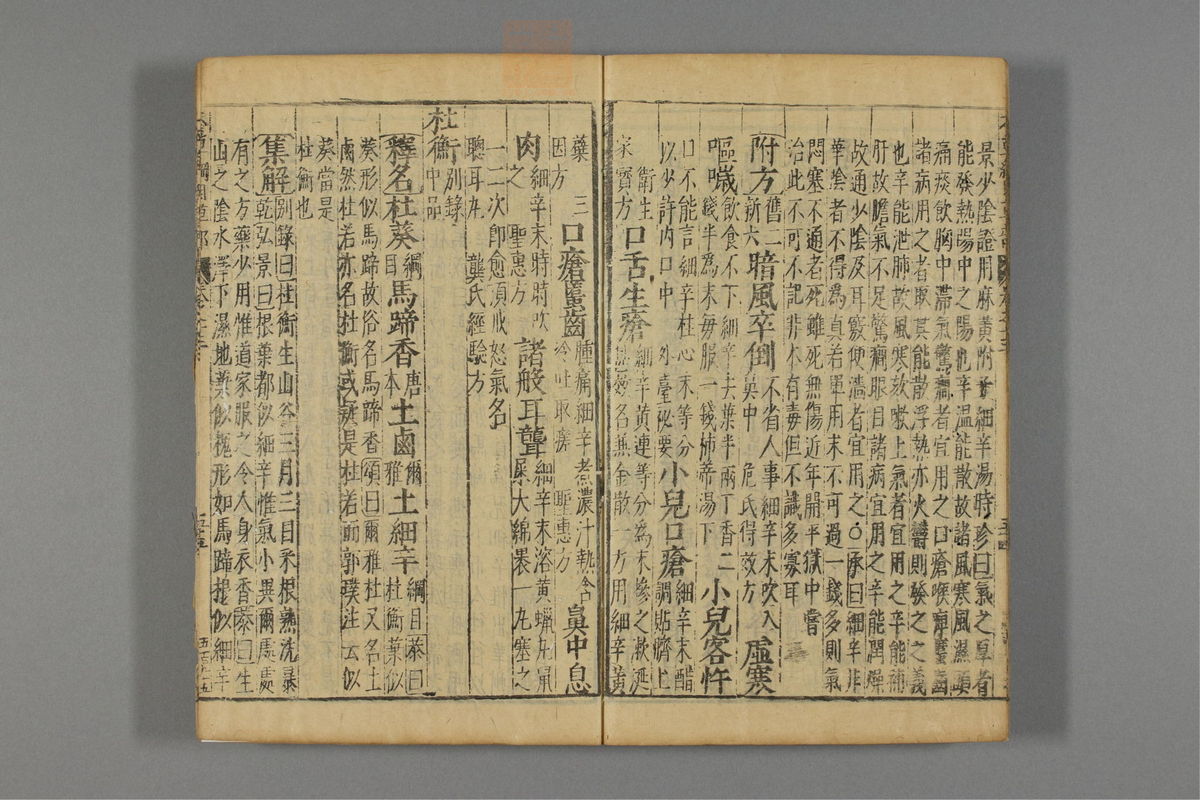 景少陰證用麻黃附子細辛湯時珍曰氣之厚者
能發熱陽中之陽也辛溫能散故諸風寒風濕頭
痛痰飲胸中滯氣驚癇者宜用之口瘡喉痺䘌齒
諸病用之者取其能散浮熱亦火鬱則發之之義
也辛能泄肺故風寒欬嗽上氣者宜用之辛能補
肝故膽氣不足驚癇眼目諸病宜用之辛能潤燥
故通少陰及耳竅便澀者宜用之○承曰細辛非
華陰者不得為真若單用末不可過一錢多則氣
悶塞不通者死雖死無傷近年開平獄中嘗
治此不可不記非本有毒但不識多寡耳
附方 舊二 新六 暗風卒倒 不省人事細辛末吹入鼻中 危氏得效方 虛寒
嘔噦 飲食不下細辛去葉半兩丁香二錢半為末每服一錢柿蒂湯下 小兒客忤
口不能言細辛桂心末等分以少許內口中 外臺祕要 小兒口瘡 細辛末醋調貼臍上
衛生家寶方 口舌生瘡 細辛黃連等分為末摻之漱涎甚效名兼金散一方用細辛黃
藥 因方 三 口瘡䘌齒 腫痛細辛煮濃汁熱含冷吐取瘥 聖惠方 鼻中息
肉 細辛末時時吹之 聖惠方 諸般耳聾 細辛末溶黃蠟丸鼠屎大綿裹一丸塞之
一二次即愈須戒怒氣名聰耳丸 龔氏經驗方
杜衡 別錄中品
釋名 杜葵 綱目 馬蹄香 唐本 土鹵 爾雅 土細辛 綱目 恭曰杜衡葉似
葵形似馬蹄故俗名馬蹄香頌曰爾雅杜又名土
鹵然杜若亦名杜衡或疑是杜若而郭璞注云似
葵當是杜衡也
集解 別錄曰杜衡生山谷三月三日采根熟洗暴
乾弘景曰根葉都似細辛惟氣小異爾處處
有之方藥少用惟道家服之令人身衣香恭曰生
山之陰水澤下濕地葉似槐形如馬蹄根似細辛